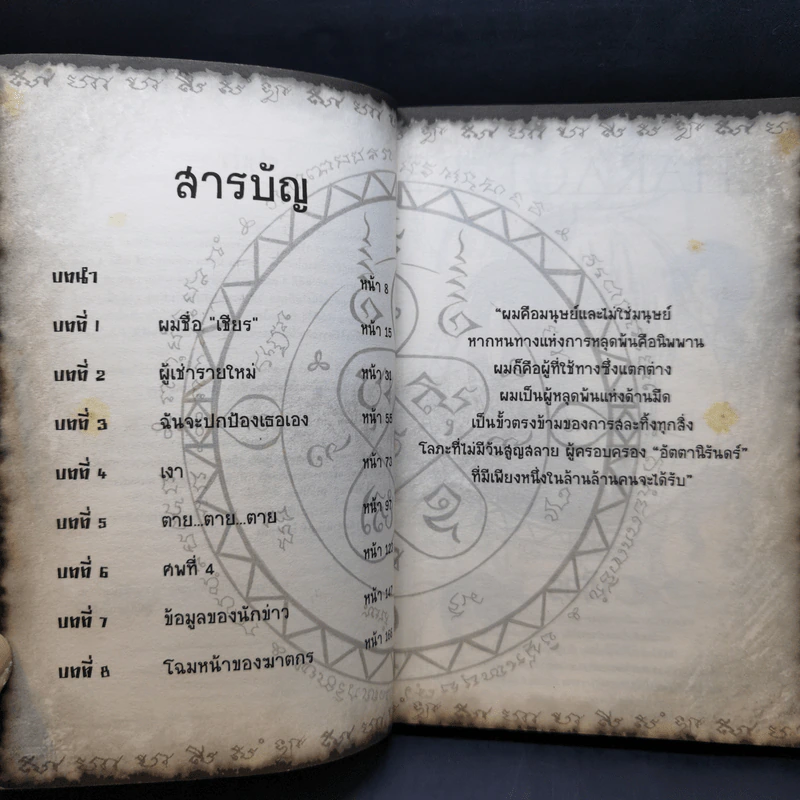 สารบัญ
บทนำ หน้า 8
บทที่ 1 ผมชื่อ "เธียร" หน้า 15
บทที่ 2 ผู้เช่ารายใหม่ หน้า 31
บทที่ 3 ฉันจะปกป้องเธอเอง หน้า 55
บทที่ 4 เงา หน้า 73
บทที่ 5 ตาย...ตาย...ตาย หน้า 97
บทที่ 6 ศพที่ 4 หน้า 127
บทที่ 7 ข้อมูลของนักข่าว หน้า 147
บทที่ 8 โฉมหน้าของฆาตกร หน้า
“ผมคือมนุษย์และไม่ใช่มนุษย์
หากหนทางแห่งการหลุดพ้นคือนิพพาน
ผมก็คือผู้ที่ใช้ทางซึ่งแตกต่าง
ผมเป็นผู้หลุดพ้นแห่งด้านมืด
เป็นขั้วตรงข้ามของการสละทิ้งทุกสิ่ง
โลภะที่ไม่มีวันสูญสลาย ผู้ครอบครอง “อัตตานิรันดร์”
ที่มีเพียงหนึ่งในล้านล้านคนจะได้รับ”